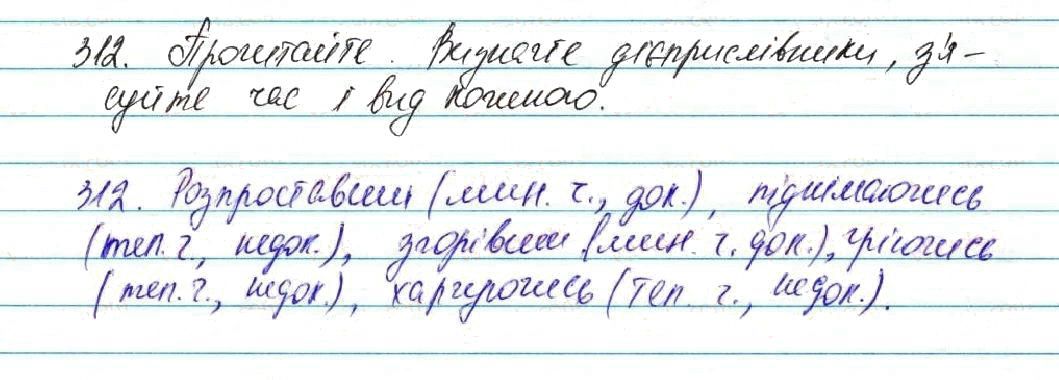 312. Прочитайте. Визначте дієприслівники, з'я-
суйте час і вид кожного.
312. Розпроставши (мин. ч., док.), піднімаючись
(теп. ч., недок.), згорівши (мин. ч. док.), гріючись
(теп. ч., недок.), харчуючись (теп. ч., недок.).